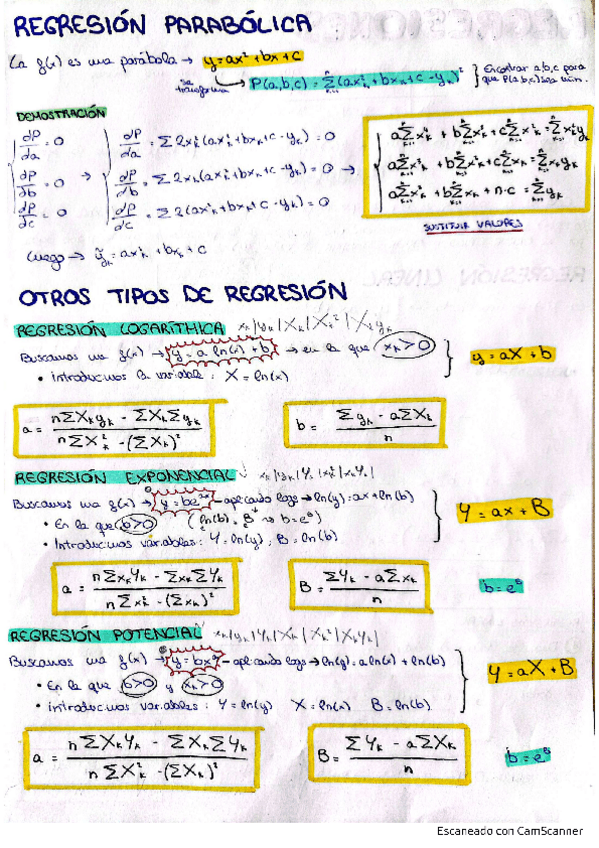 REGRESIÓN PARABÓLICA
La f(x) es una parábola → y=ax²+bx+c
se transforma → P(a,b,c) = Σ(ax²ₖ+bxₖ+c-yₖ)² } Encontrar a,b,c para que P(a,b,c) sea mín.
DEMOSTRACIÓN
dP/da = 0 → dP/da = Σ2x²ₖ(ax²ₖ+bxₖ+c-yₖ) = 0
∂P/∂b = 0 → ∂P/∂b = Σ2xₖ(ax²ₖ+bxₖ+c-yₖ) = 0 →
dP/dc = 0 → dP/dc = Σ2(ax²ₖ+bxₖ+c-yₖ) = 0
aΣx⁴ₖ + bΣx³ₖ + cΣx²ₖ = Σx²ₖyₖ
aΣx³ₖ + bΣx²ₖ + cΣxₖ = Σxₖyₖ
aΣx²ₖ + bΣxₖ + n·c = Σyₖ
SUSTITUIR VALORES
Luego → ỹₖ = ax²ₖ + bxₖ + c
OTROS TIPOS DE REGRESIÓN
REGRESIÓN LOGARÍTMICA xₖ|yₖ|Xₖ|Xₖ²|Xₖyₖ
Buscamos una f(x) → y = a ln(x) + b → en la que xₖ>0 } y = aX + b
• introducimos la variable: X = ln(x)
a = (nΣXₖyₖ - ΣXₖΣyₖ) / (nΣX²ₖ - (ΣXₖ)²)
b = (Σyₖ - aΣXₖ) / n
REGRESIÓN EXPONENCIAL xₖ|yₖ|Yₖ|xₖ²|xₖYₖ|
Buscamos una f(x) → y=beᵃˣ - aplicando logs → ln(y)=ax+ln(b) } Y = ax + B
• En la que b>0 (ln(b)=B → b=eᴮ)
• Introducimos variables: Y=ln(y); B=ln(b)
a = (nΣxₖYₖ - ΣxₖΣYₖ) / (nΣx²ₖ - (Σxₖ)²)
B = (ΣYₖ - aΣxₖ) / n
b = eᴮ
REGRESIÓN POTENCIAL xₖ|yₖ|Yₖ|Xₖ|Xₖ²|XₖYₖ|
Buscamos una f(x) → y=bxᵃ - aplicando logs → ln(y)=a ln(x) + ln(b) } Y = aX + B
• En la que b>0 y xₖ>0
• introducimos variables: Y=ln(y) X=ln(x) B=ln(b)
a = (nΣXₖYₖ - ΣXₖΣYₖ) / (nΣX²ₖ - (ΣXₖ)²)
B = (ΣYₖ - aΣXₖ) / n
b = eᴮ
Escaneado con CamScanner